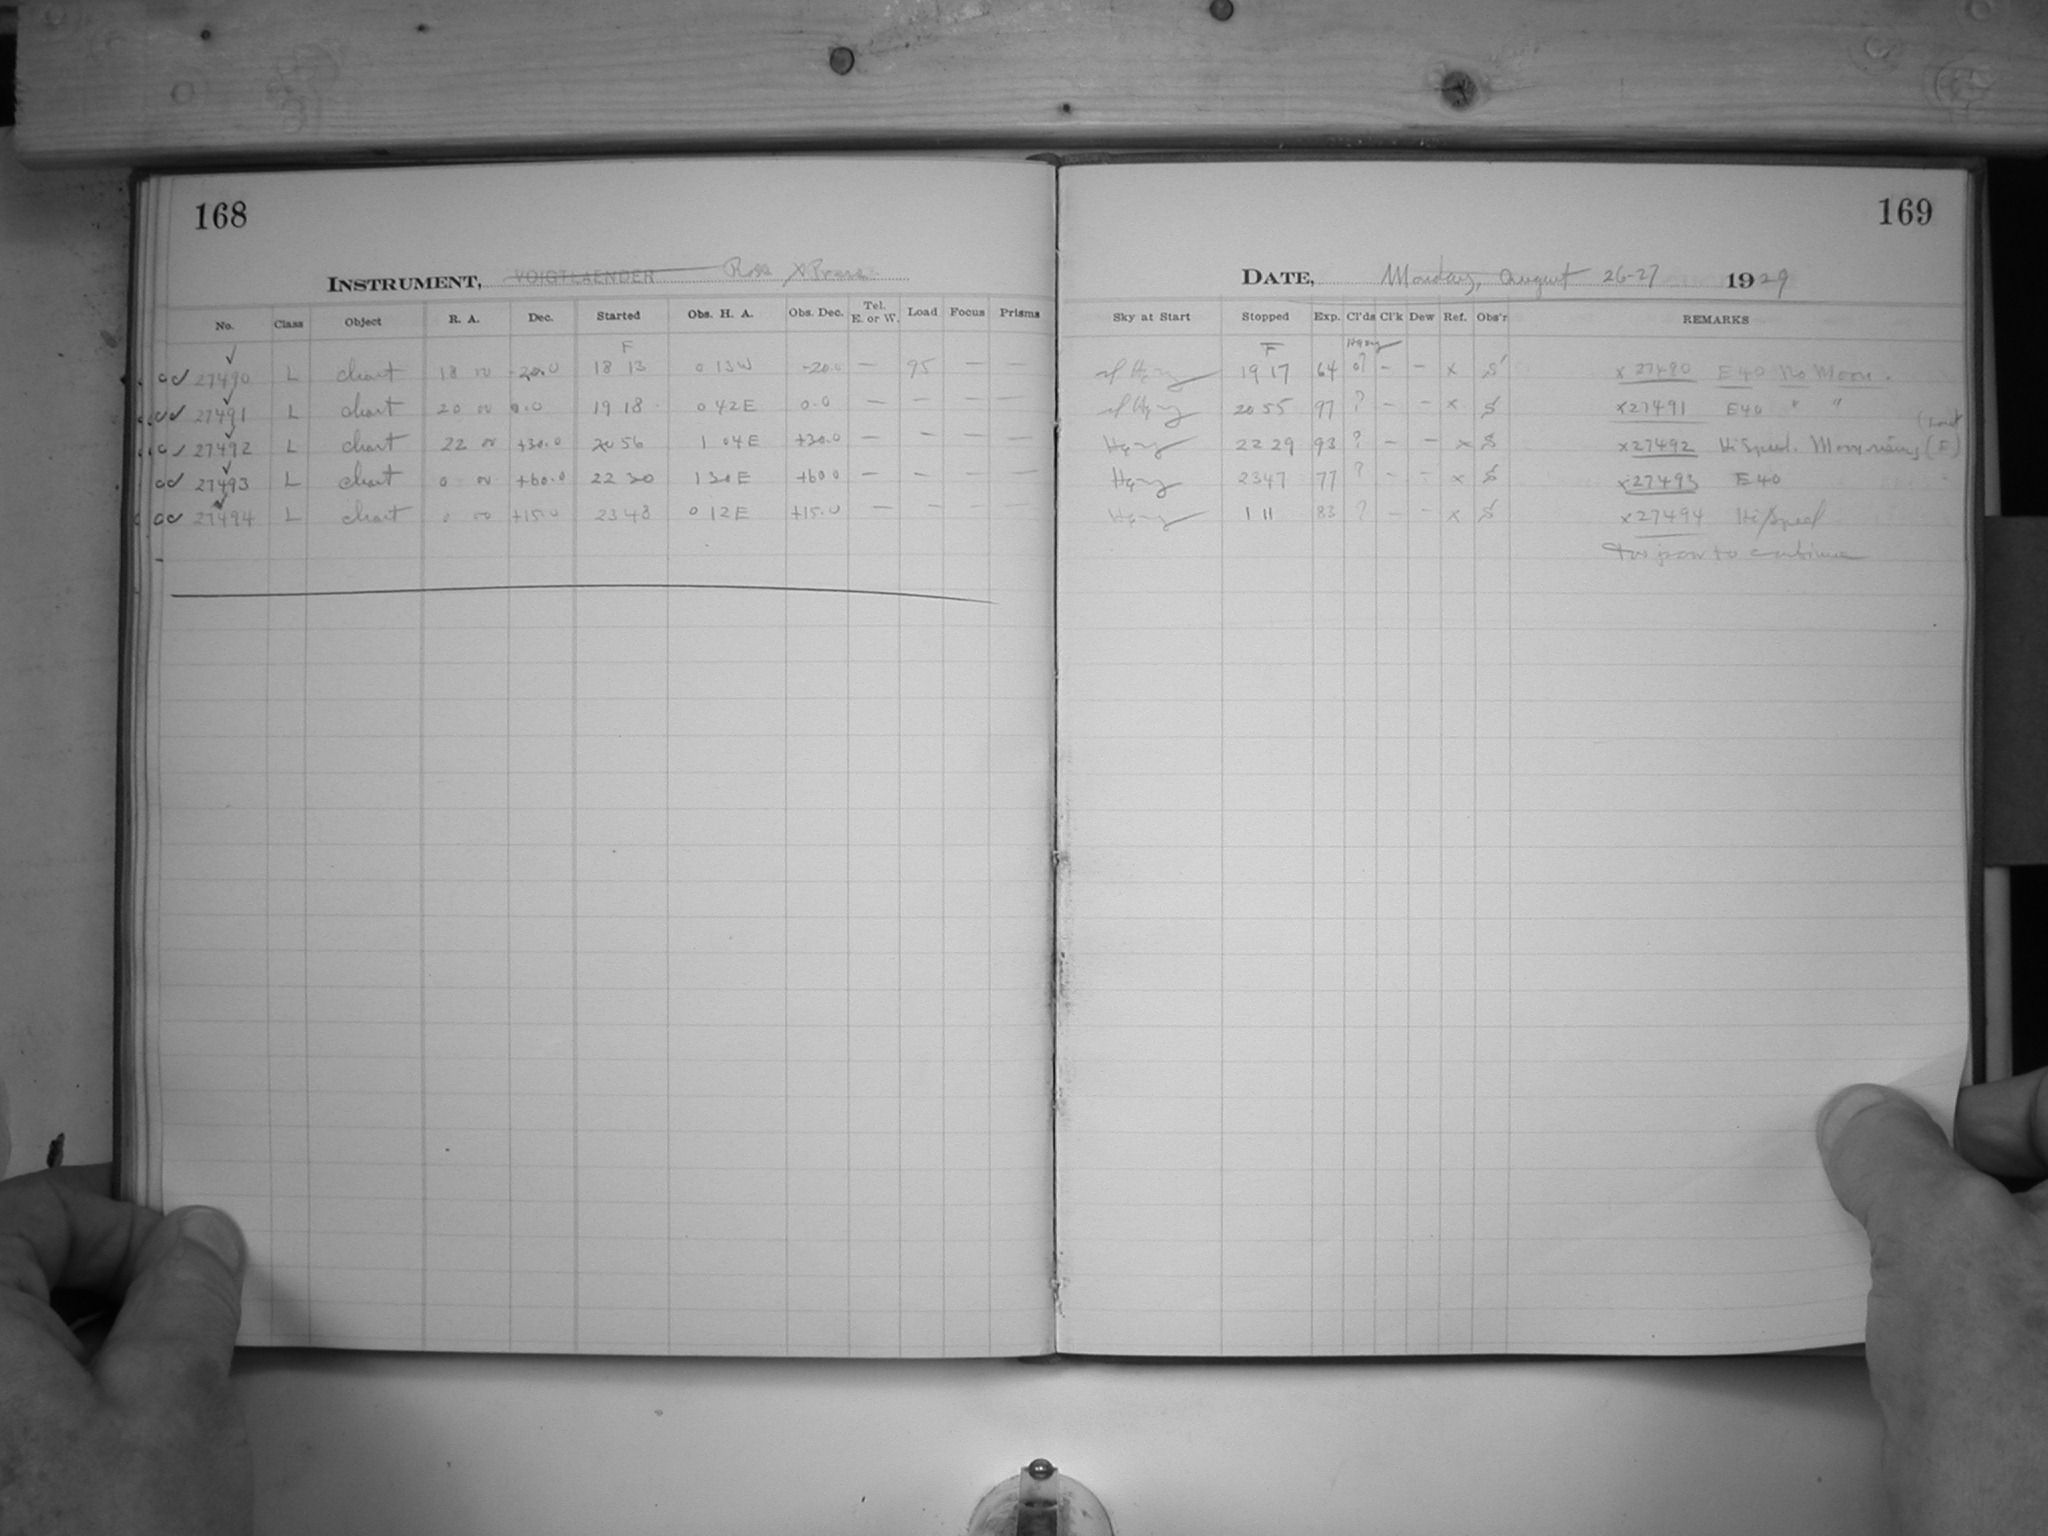 168
INSTRUMENT, VOIGTLAENDER Ross XPress
No. Class Object R. A. Dec. Started Obs. H. A. Obs. Dec. Tel. E. or W. Load Focus Prisms
F
27490 L chart 18 00 -20.0 18 13 0 13W -20.0 — 95 — —
27491 L chart 20 00 0.0 19 18 0 42E 0.0 — — — —
27492 L chart 22 00 +30.0 20 56 1 04E +30.0 — — — —
27493 L chart 0 00 +60.0 22 30 1 30E +60 0 — — — —
27494 L chart 0 00 +15.0 23 48 0 12E +15.0 — — — —
169
DATE, Monday, August 26-27 1929
Sky at Start Stopped Exp. Cl'ds Cl'k Dew Ref. Obs'r REMARKS
F Hazy
Hazy 19 17 64 0? — — x S x 27490 E40 No Moon.
Hazy 20 55 97 ? — — x S x27491 E40 " "
Hazy 22 29 93 ? — — x S x27492 HiSpeed. Moon rising (E)
Hazy 2347 77 ? — — x S x27493 E40
Hazy 1 11 83 ? — — x S x27494 Hi/Speed
Too poor to continue